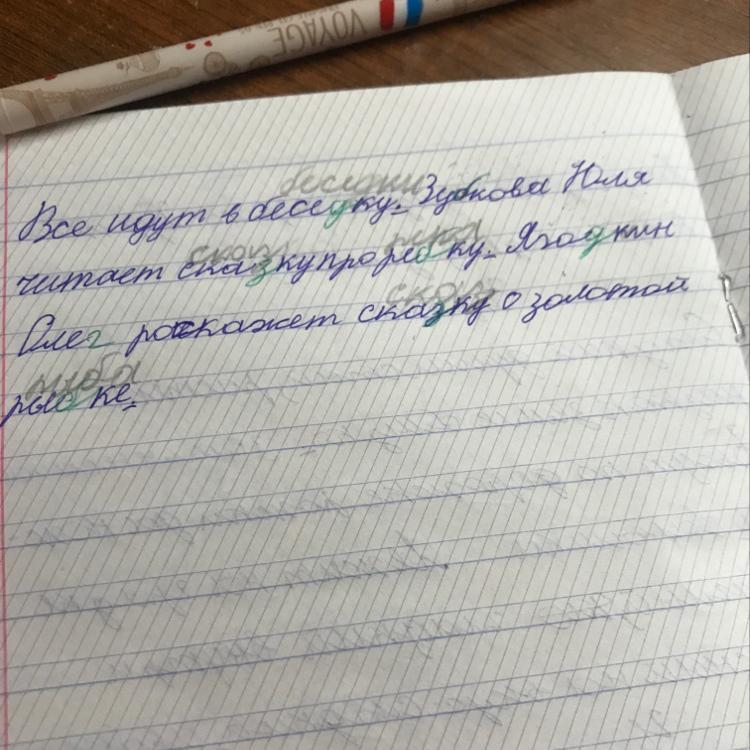 VOYAGE
беседки
Все идут в беседку. Зубкова Юля
читает сказку про репку. Ягодкин
Олег роскажет сказку о золотой
рыбке.